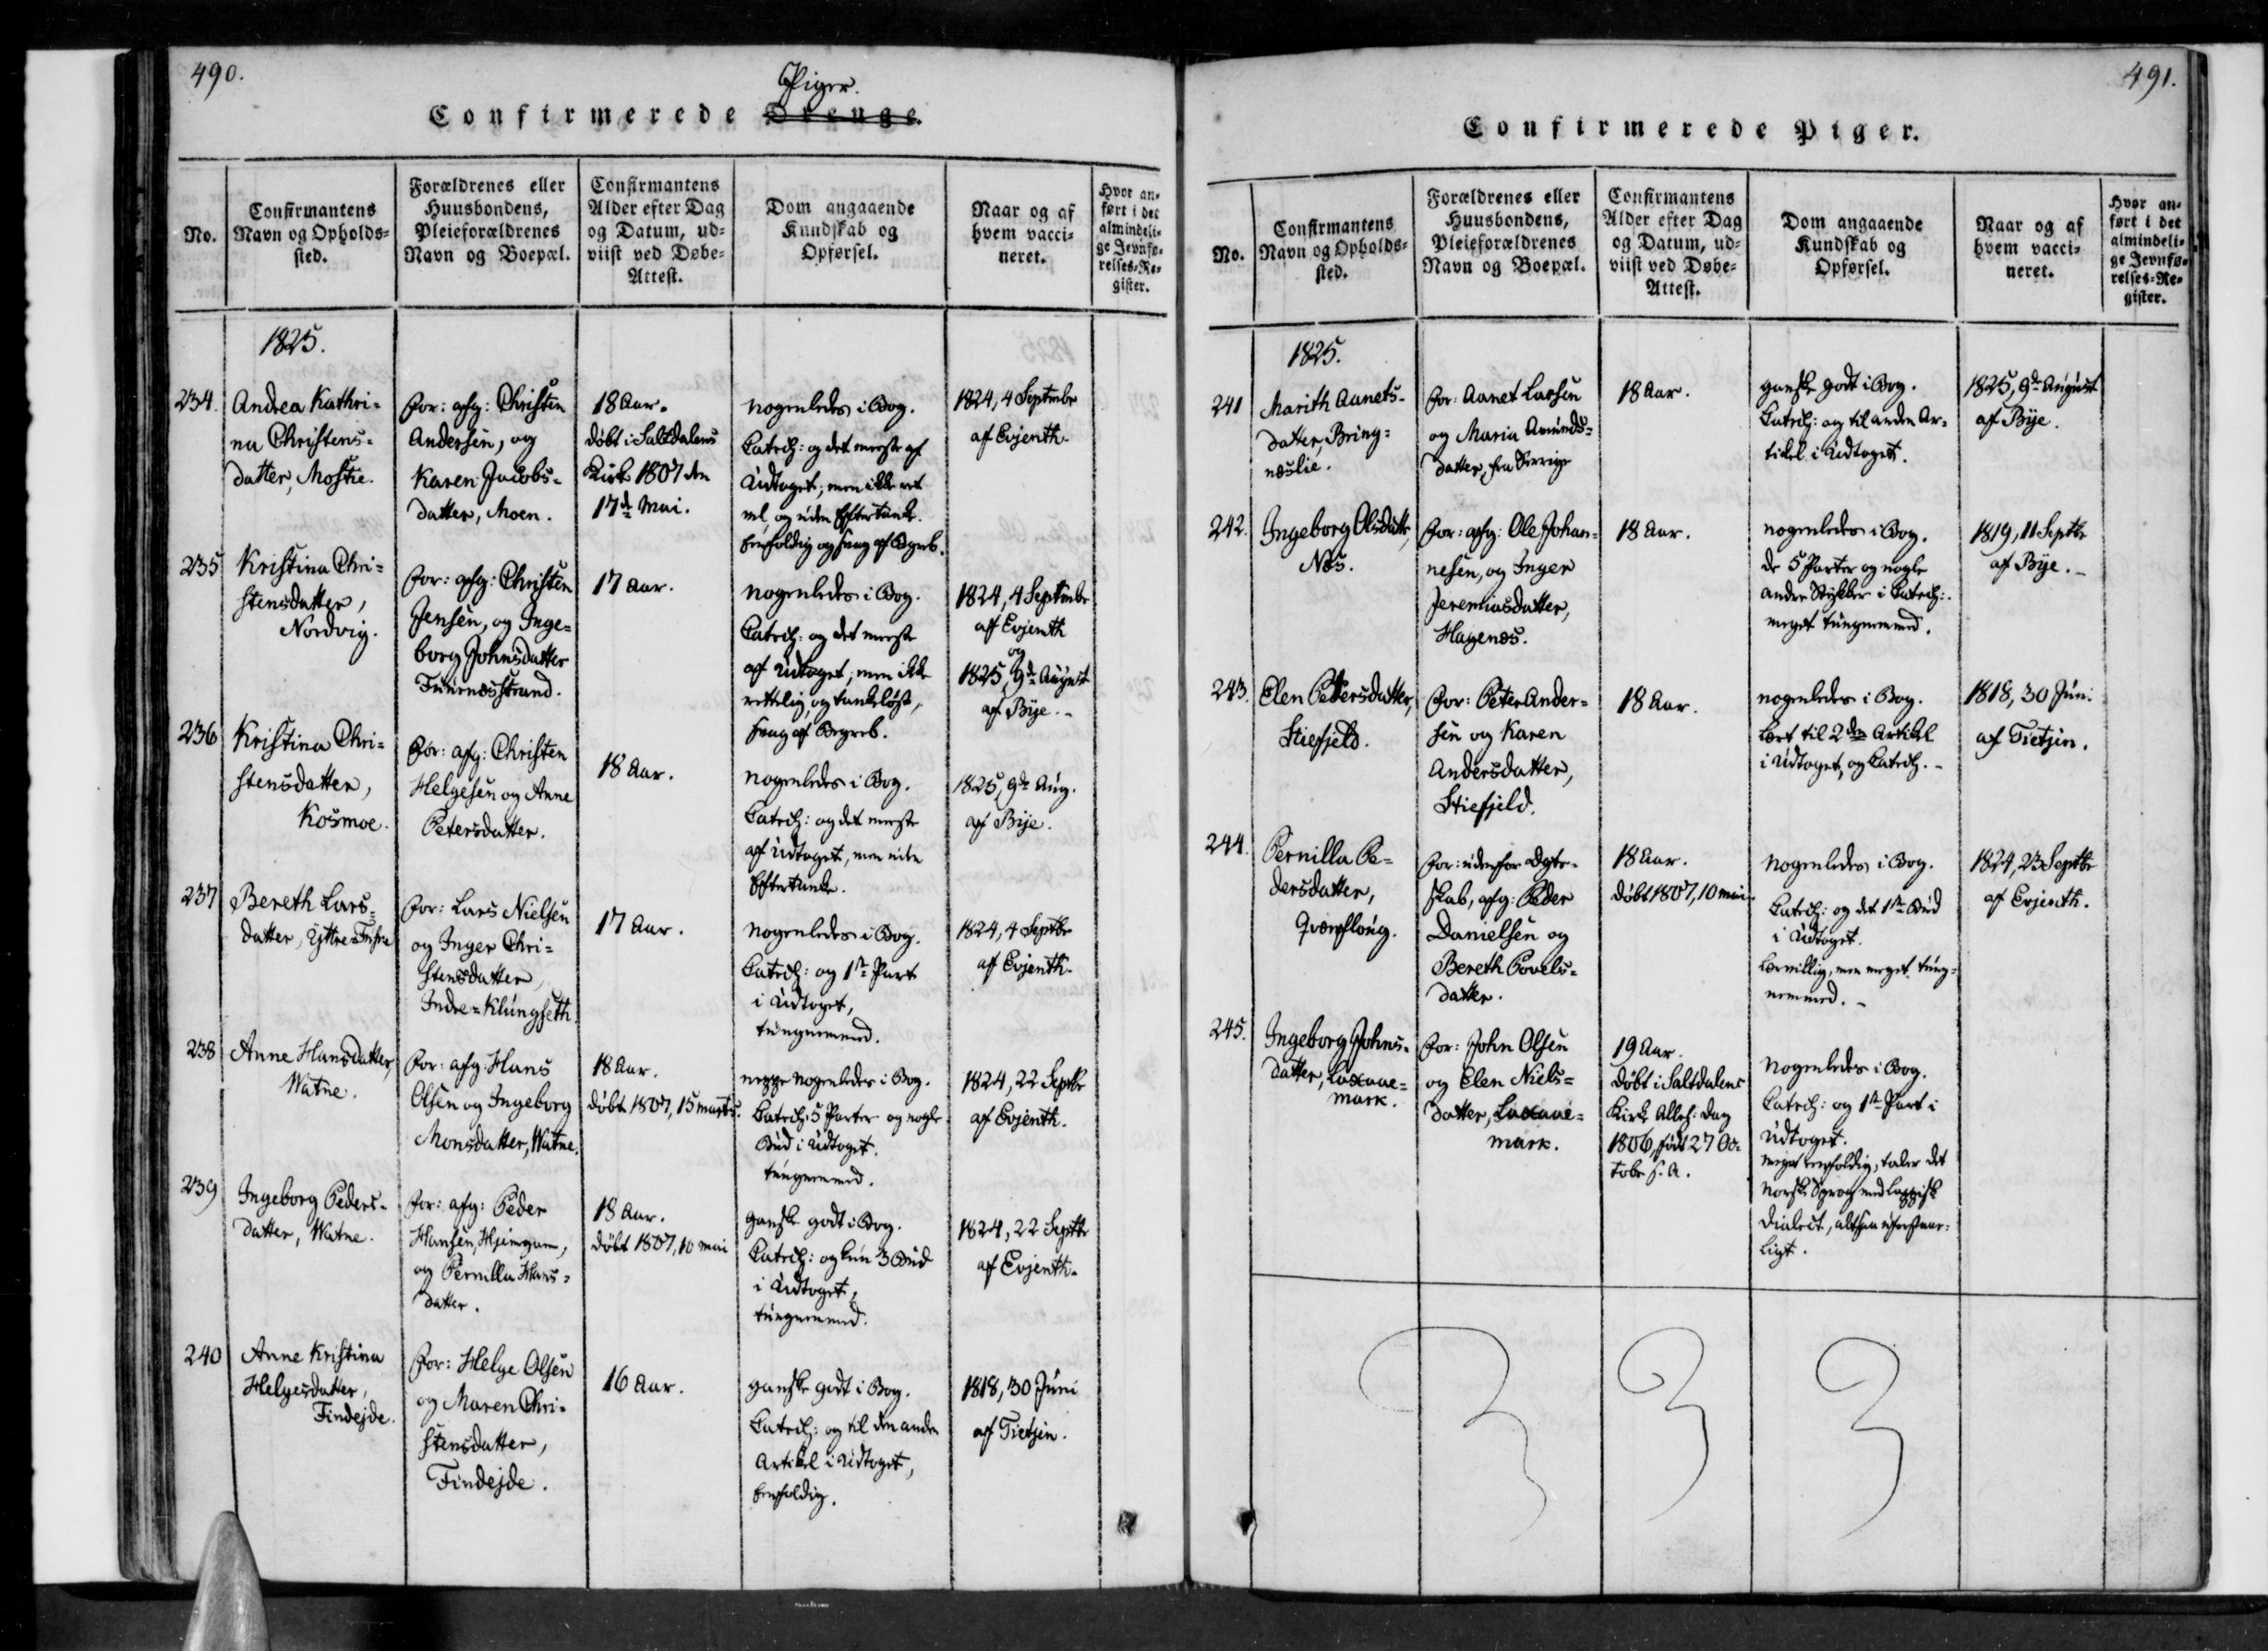 490.
Piger.
Confirmerede Drenge.
No.
Confirmantens
Navn og Opholds-
sted.
Forældrenes eller
Huusbondens,
Pleieforældrenes
Navn og Boepæl.
Confirmantens
Alder efter Dag
og Datum, ud-
viist ved Døbe-
Attest.
Dom angaaende
Kundskab og
Opførsel.
Naar og af
hvem vacci-
neret.
Hvor an-
ført i det
almindeli-
ge Jevnfø-
relses-Re-
gister.
1825.
234.
Andrea Kathri-
na Christens-
datter, Mostie.
For: afg: Christen
Andersen, og
Karen Jacobs-
datter, Moen.
18 Aar.
døbt i Saltdalens
Kirke 1807 den
17de Mai.
nogenledes i Bog.
Catech: og det meeste af
Udtoget; men ikke ret
vel, og uden Eftertanke.
Eenfoldig og svag af Begreb.
1824, 4 Septembr
af Evjenth.
235
Kristina Chri-
stensdatter,
Nordvig.
For: afg: Christen
Jensen, og Inge-
borg Johnsdatter
Tuurnæsstrand.
17 Aar.
nogenledes i Bog.
Catech: og det meeste
af Udtoget; men ikke
rettelig, og tankeløst,
svag af Begreb.
1824, 4 Septembr
af Evjenth
og
1825, 9de August
af Bye.-
236
Kristina Chri-
stensdatter,
Kosmoe.
For: afg: Christen
Helgesen og Anne
Petersdatter.
18 Aar.
nogenledes i Bog.
Catech: og det meeste
af Udtoget, men uden
Eftertanke.
1825, 9de Aug.
af Bye.
237
Bereth Lars-
datter, Yttre-
For: Lars Nielsen
og Inger Chri-
stensdatter,
Indre-Klungseth.
17 Aar.
nogenledes i Bog.
Catech: og 1ste Part
i Udtoget,
tungnemmed.
1824, 4 Septbr
af Evjenth.
238
Anne Hansdatter,
Watne.
For: afg: Hans
Olsen og Ingeborg
Monsdatter, Watne.
18 Aar.
døbt 1807, 15 marts.
neppe nogenledes i Bog.
Catech: 5 Parter og nogle
Bud i Udtoget.
tungnemmed.
1824, 22 Septbr
af Evjenth.
239
Ingeborg Peders-
datter, Watne.
For: afg: Peder
Hansen, Hjemgam,
og Pernilla Hans-
datter.
18 Aar.
døbt 1807, 10 mai
ganske godt i Bog.
Catech: og kun 3 Bud
i Udtoget,
tungnemmed.
1824, 22 Septbr
af Evjenth.
240
Anne Kristina
Helgesdatter,
Findejde.
For: Helge Olsen
og Maren Chri-
stensdatter,
Findejde.
16 Aar.
ganske godt i Bog.
Catech: og til den anden
Artikel i Udtoget,
Eenfoldig.
1818, 30 Juni
af Tietjen.
491.
Confirmerede Piger.
No.
Confirmantens
Navn og Opholds-
sted.
Forældrenes eller
Huusbondens,
Pleieforældrenes
Navn og Boepæl.
Confirmantens
Alder efter Dag
og Datum, ud-
viist ved Døbe-
Attest.
Dom angaaende
Kundskab og
Opførsel.
Naar og af
hvem vacci-
neret.
Hvor an-
ført i det
almindeli-
ge Jevnfø-
relses-Re-
gister.
1825.
241
Marith Aunets-
datter, Bring-
næslie.
For: Aunet Larsen
og Maria Amunds-
datter, fra Sverrige
18 Aar.
ganske godt i Bog.
Catech: og til anden Ar-
tikel i Udtoget.
1825, 9de August
af Bye.
242.
Ingeborg Olsdattr,
Næs.
For: afg: Ole Johan-
nesen, og Inger
Jeremiasdatter,
Hagenæs.
18 Aar.
nogenledes i Bog.
de 5 Parter og nogle
andre Stykker i Catech:.
meget tungnemmed.
1819, 11 Septbr
af Bye.-
243.
Elen Petersdatter,
Stiefjeld.
For: Peter Ander-
sen og Karen
Andersdatter,
Stiefjeld.
18 Aar.
nogenledes i Bog.
Lært til 2den Artikel
i Udtoget, og Catech.-
1818, 30 Juni
af Tietjen.
244.
Pernilla Pe-
dersdatter,
Qværfloug.
For: udenfor Ægte-
skab, afg: Peder
Danielsen og
Bereth Povels-
datter.
18 Aar.
døbt 1807, 10 mai.
Nogenledes i Bog.
Catech: og det 1ste Bud
i Udtoget.
Lærvillig, men meget tung-
nemmed.-
1824, 23 Septbr
af Evjenth.
245.
Ingeborg Johns-
datter, Luxaue-
mark.
For: John Olsen
og Elen Niels-
datter, Luxaue-
mark.
19 Aar.
Døbt i Saltdalens
Kirke Alleh: Dag
1806, født 27 Oc-
tobr s. A.
Nogenledes i Bog.
Catech: og 1ste Part i
Udtoget.
meget eenfoldig, taler det
Norske Sprog med lappisk
Dialect, altsaa uforstaae-
ligt.